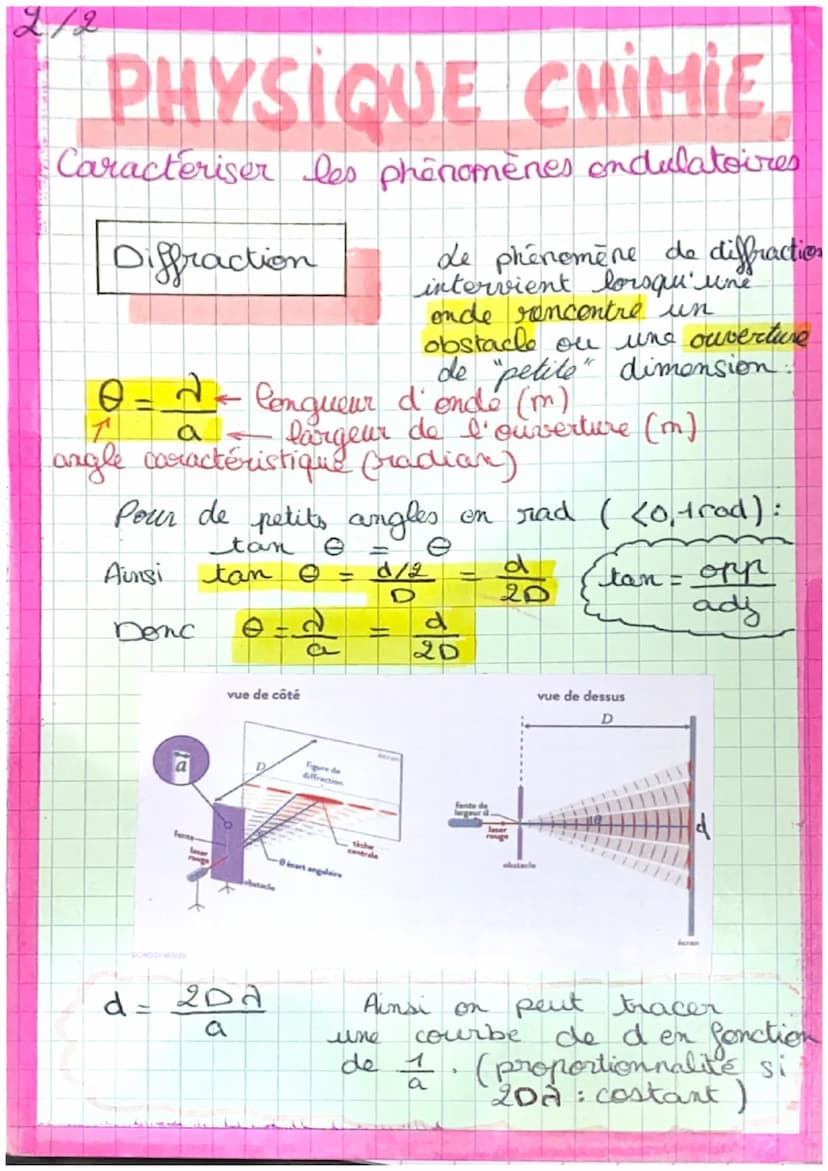 2/2
PHYSIQUE CHIMIE
Caractériser les phénomènes ondulatoires
Diffraction
Le phénomène de diffraction
intervient lorsqu'une
onde rencontre un
obstacle ou une ouverture
de "petite" dimension.
θ = λ/a
← longueur d'onde (m)
← largeur de l'ouverture (m)
angle caractéristique (radian)
Pour de petits angles en rad ( <0,1rad) :
tan θ = θ
Ainsi tan θ = d/2/D = d/2D
tan = opp/adj
Donc θ = λ/a = d/2D
vue de côté
a
D
écran
figure de
diffraction
fente
laser
rouge
tâche
centrale
θ écart angulaire
obstacle
vue de dessus
D
fente de
largeur a
laser
rouge
θ
d
obstacle
écran
d = 2Dλ/a
Ainsi on peut tracer
une courbe de d en fonction
de 1/a. (proportionnalité si
2Dλ : costant )